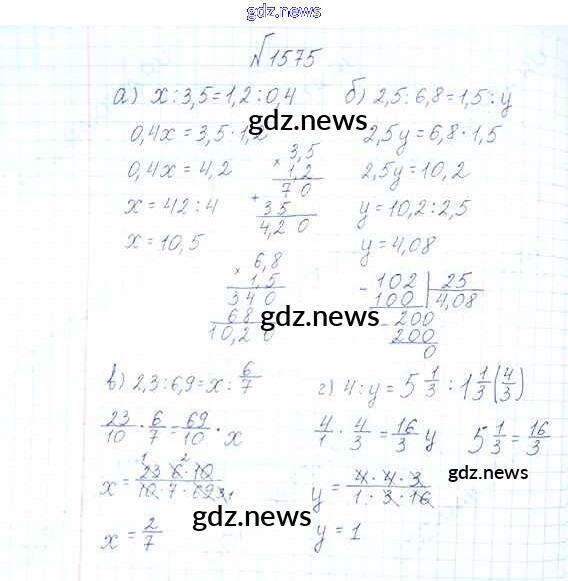 gdz.news
№1575
а) x : 3,5 = 1,2 : 0,4
0,4x = 3,5 · 1,2
gdz.news
0,4x = 4,2
x = 42 : 4
x = 10,5
3,5
× 1,2
7 0
+ 35
4,2 0
6,8
× 1,5
34 0
68
10,2 0
б) 2,5 : 6,8 = 1,5 : y
2,5y = 6,8 · 1,5
2,5y = 10,2
y = 10,2 : 2,5
y = 4,08
- 102 | 25
100 | 4,08
- 200
200
0
gdz.news
в) 2,3 : 6,9 = x : 6/7
23/10 · 6/7 = 69/10 · x
x = 23 · 6 · 10 / 10 · 7 · 69
1 2
3 1
x = 2/7
gdz.news
г) 4 : y = 5 1/3 : 1 1/3 (4/3)
4/1 · 4/3 = 16/3 y 5 1/3 = 16/3
gdz.news
y = 4 · 4 · 3 / 1 · 3 · 16
y = 1